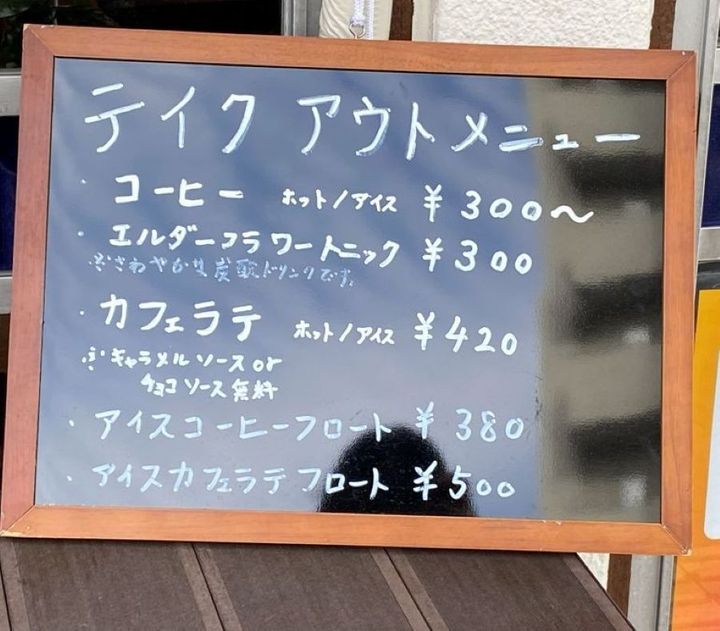 テイク アウトメニュー
・コーヒー ホット/アイス ¥300〜
・エルダーフラワートニック ¥300
※さわやかな炭酸ドリンクです。
・カフェラテ ホット/アイス ¥420
※キャラメルソースor
チョコソース無料
・アイスコーヒーフロート ¥380
・アイスカフェラテフロート ¥500